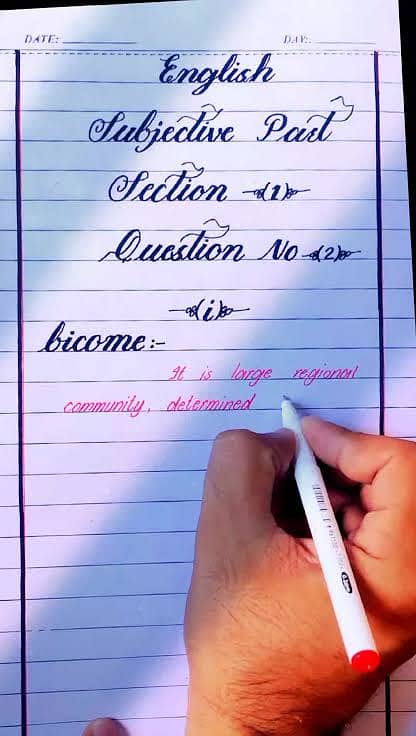 DATE: DAY:
English
Subjective Part
Section (1)
Question No (2)
(i)
bicome:-
It is large regional
community, determined